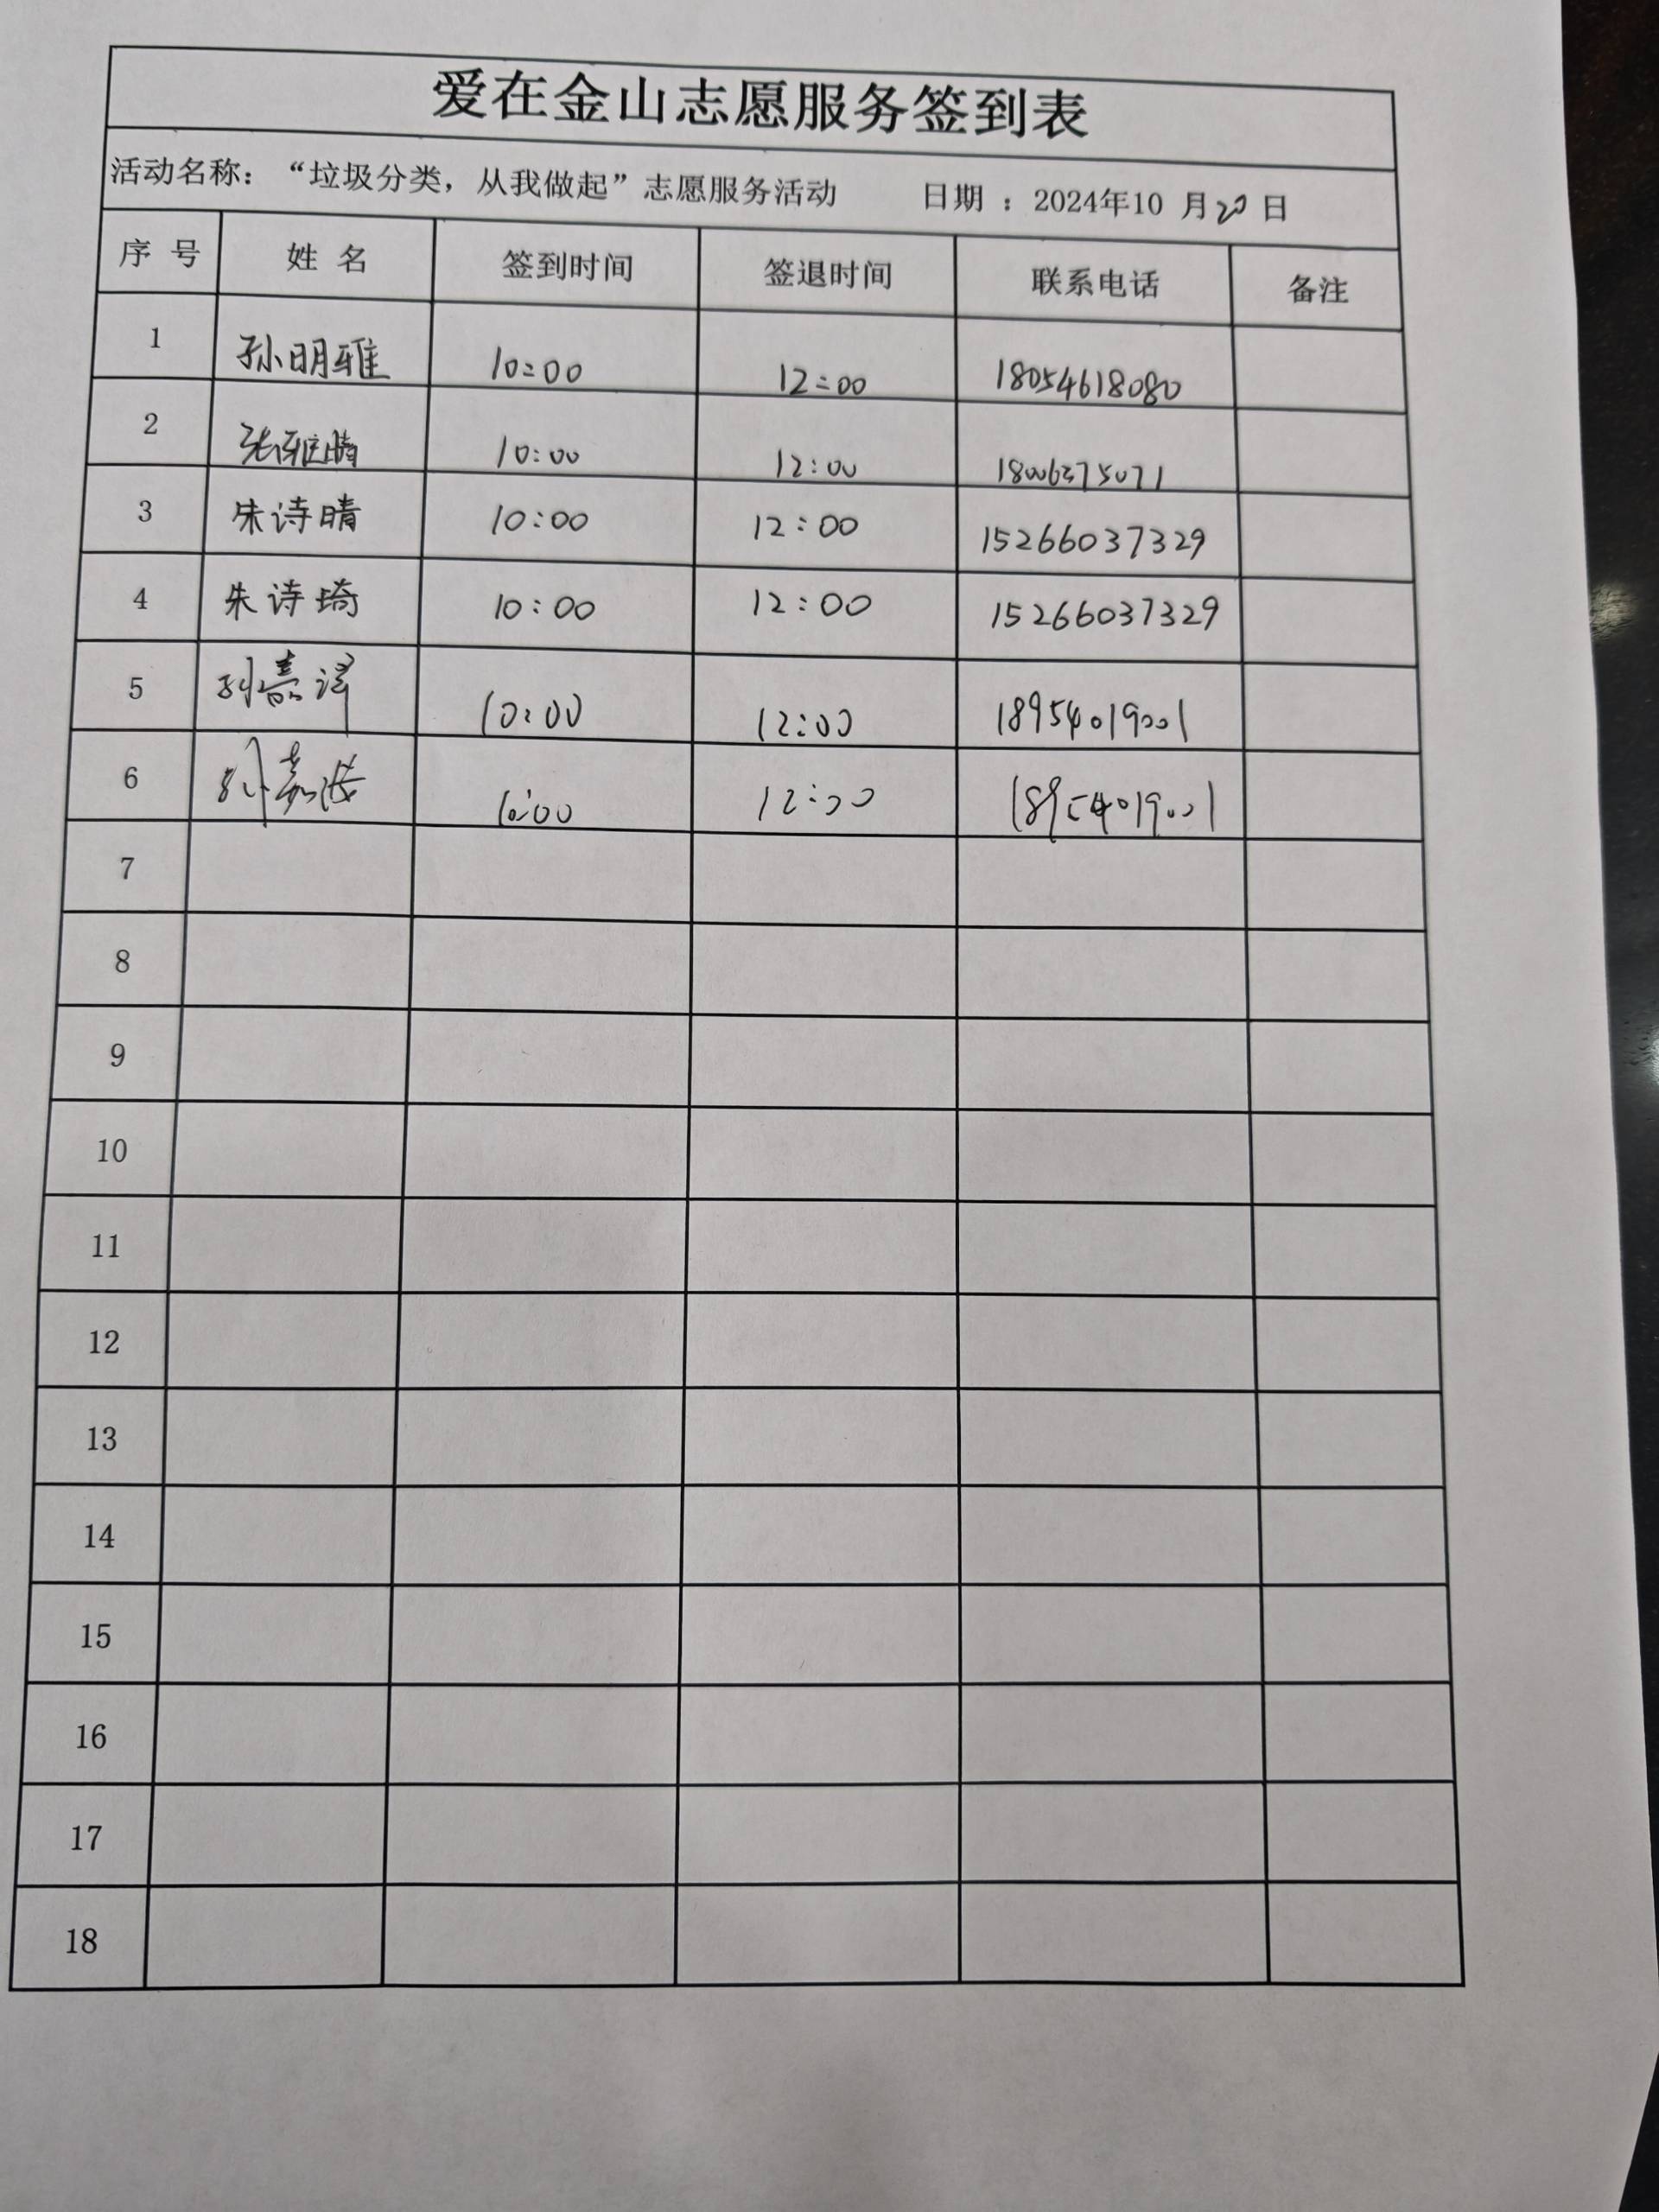 爱在金山志愿服务签到表
活动名称：“垃圾分类，从我做起”志愿服务活动 日期 ：2024年10 月20日
序 号 姓 名 签到时间 签退时间 联系电话 备注
1 孙明雅 10:00 12:00 18054618080
2 张雅晴 10:00 12:00 18006375071
3 朱诗晴 10:00 12:00 15266037329
4 朱诗琦 10:00 12:00 15266037329
5 孙嘉泽 10:00 12:00 18954019001
6 孙嘉 10:00 12:00 18954019001
7
8
9
10
11
12
13
14
15
16
17
18